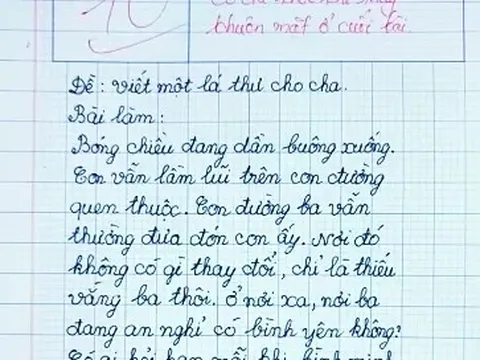 khuôn mặt ở cuối bài.
Đề: viết một lá thư cho cha.
Bài làm:
Bóng chiều đang dần buông xuống.
Con vẫn lầm lũi trên con đường
quen thuộc. Con đường ba vẫn
thường đưa đón con ấy. Nơi đó
không có gì thay đổi, chỉ là thiếu
vắng ba thôi. Ở nơi xa, nơi ba
đang an nghỉ có bình yên không?